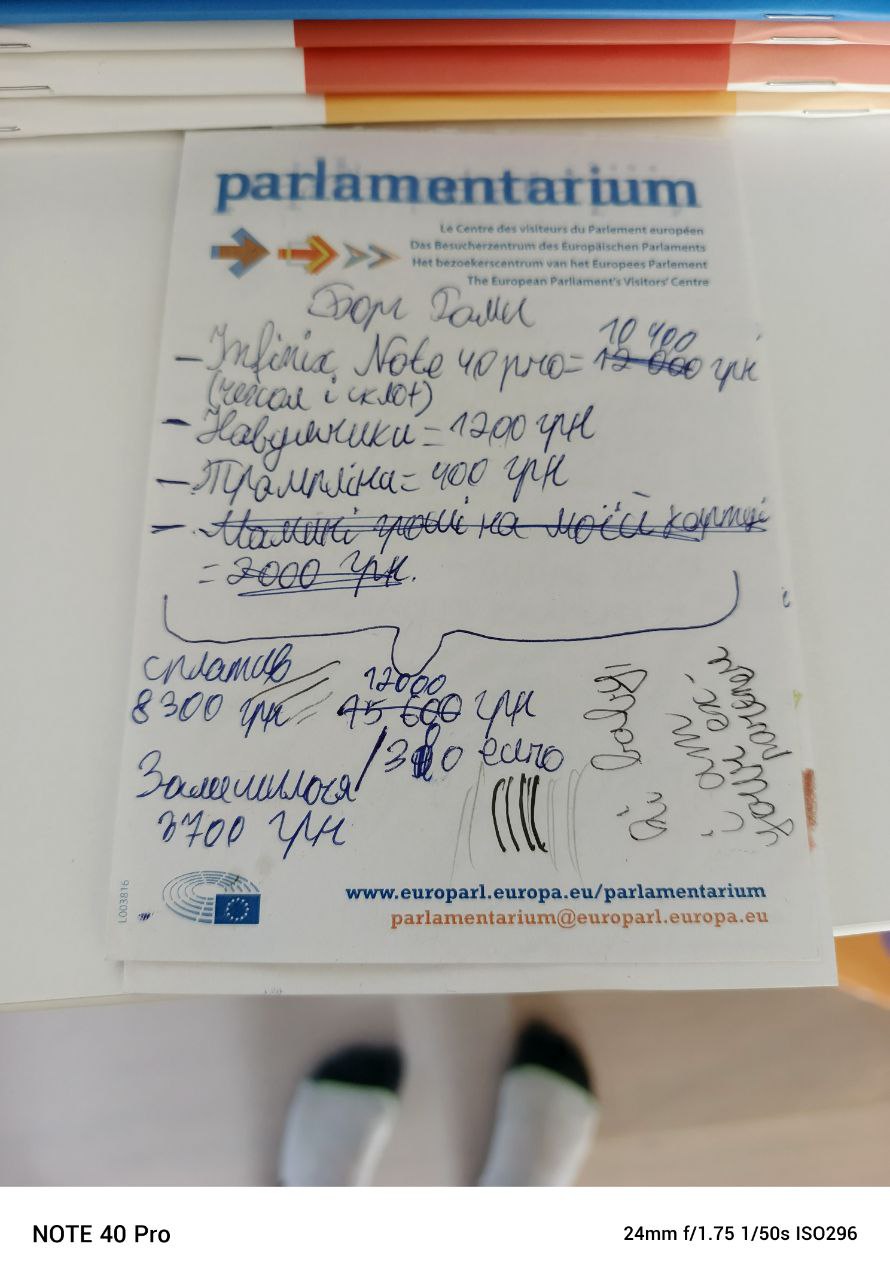 parlamentarium
Le Centre des visiteurs du Parlement européen
Das Besucherzentrum des Europäischen Parlaments
Het bezoekerscentrum van het Europees Parlement
The European Parliament's Visitors' Centre
Борг
10 400
– Infinix Note 40 pro = 12 000 грн
(чехол і скло)
– Навушники = 1200 грн
– Трампліна = 400 грн
– Мамині гроші на моїй картці
= 2000 грн.
сплатив
8300 грн
12000
15 600 грн
/ 3 0 euro
Залишилося
3700 грн
www.europarl.europa.eu/parlamentarium
parlamentarium@europarl.europa.eu
L003816
NOTE 40 Pro
24mm f/1.75 1/50s ISO296